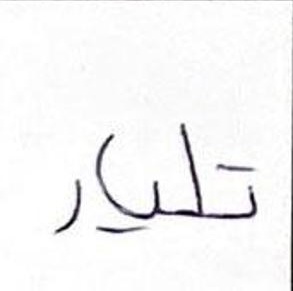 تلیار